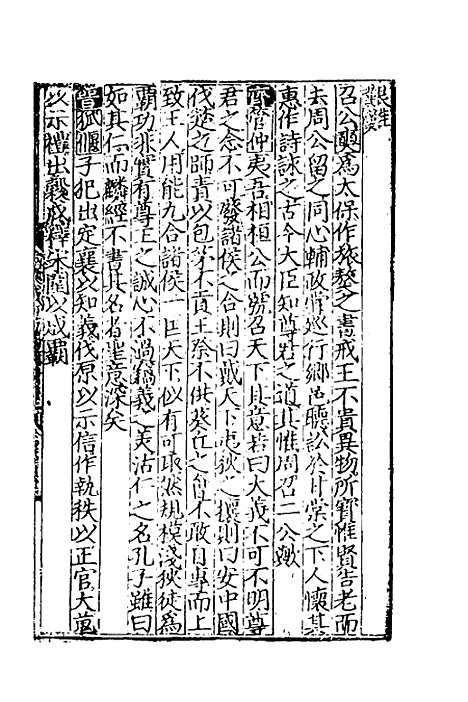 艱難
召公奭為太保作旅獒之書戒王不貴異物所寳惟賢告老而
去周公留之同心輔政嘗巡行鄉邑聽訟於甘棠之下人懷其
惠作詩詠之古今大臣知尊君之道其惟周召二公歟
齊管仲夷吾相桓公而覇召天下其意若曰大義不可不明尊
君之念不可發諸侯之合則曰戴天下夷狄之攘則曰安中國
伐楚之師責以包茅不貢王祭不供葵丘之會不敢自專而上
致王人用能九合諸侯一匡天下似有可取然規模淺狹徒為
覇功非實有尊王之誠心不過竊義之美沽仁之名孔子雖曰
如其仁而麟經不書其名者聖意深矣
晉狐偃子犯出定襄以知義伐原以示信作執秩以正官大蒐
以示禮出襄戍釋宋圍以成覇